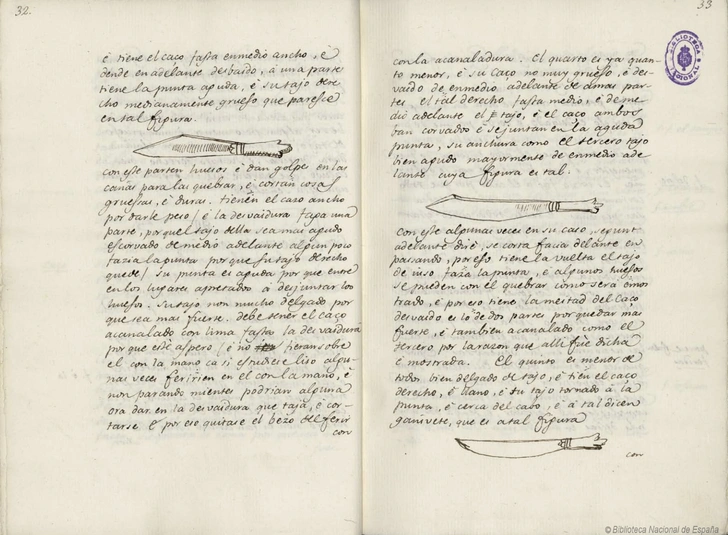 32.
é tiene el caço fasta enmedio ancho, é
dende en adelante desbaido, á una parte
tiene la punta aguda, é su tajo dere
cho medianamente grueso que paresce
en tal figura.
con este parten huesos é dan golpes en las
cañas para las quebrar, é cortan cosas
gruesas, é duras. tienen el caço ancho
por darle peso / é la desvaidura faza una
parte, porque el tajo della sea mas agudo
escorvado de medio adelante algun poco
fazia la punta porque su tajo derecho
quede / su punta es aguda porque entre
en los lugares apretados á desjuntar los
huesos. su tajo non mucho delgado por
que sea mas fuerte. debe tener el caço
acanalado con lima fasta la desvaidura
porque esté aspero / é no fieran sobre
el con la mano ca si estuviese liso algu-
nas veces feririen en el con la mano, é
non parando mientes podrian alguna
ora dar en la desvaidura que taja, é cor-
tarse. E por eso quitase el bezo del ferir
con
33
con la acanaladura. El quarto es ya quan-
to menor, é su caço no muy grueso, é des-
vaido de enmedio adelante de amas par-
tes el tal derecho fasta medio, é de me-
dio adelante el tajo, é el caço ambos
van corvados é se juntan en la aguda
punta, su anchura como el tercero tajo
bien agudo mayormente de enmedio ade
lante cuya figura es tal.
con este algunas veces en su caso, segunt
adelante diré, se corta facia delante en
pasando, por eso tiene la vuelta el tajo
de iuso faza la punta, é algunos huesos
se pueden con el quebrar como será mos
trado, é por eso tiene la meitad del caço
desvaido é lo de dos partes por quedar mas
fuerte, é tambien acanalado como el
tercero por la razon que alli fue dicha
é mostrada. El quinto es menor de
todos, bien delgado de tajo, é tien el caço
derecho, é llano, é su tajo tornado á la
punta, é cerca del cabo, é á tal dicen
gañivete, que es a tal figura
con
BIBLIOTECA NACIONAL
© Biblioteca Nacional de España